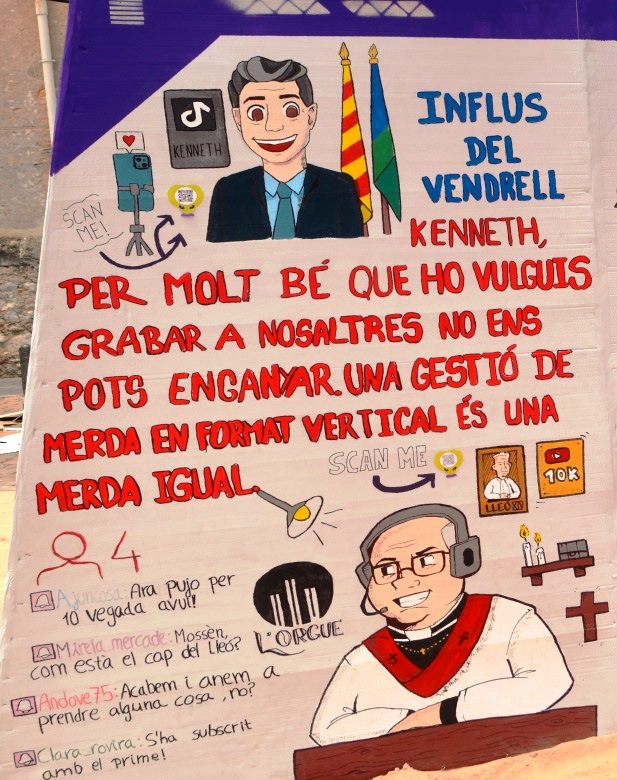 KENNETH
INFLUS
DEL
VENDRELL
SCAN
ME!
KENNETH,
PER MOLT BÉ QUE HO VULGUIS
GRABAR A NOSALTRES NO ENS
POTS ENGANYAR. UNA GESTIÓ DE
MERDA EN FORMAT VERTICAL ÉS UNA
MERDA IGUAL.
SCAN ME
LLEÓ
10K
4
Ajuncosa: Ara pujo per
10 vegada avui!
Mireia_mercade: Mossèn,
com està el cap del Lleó?
Andove75: Acabem i anem a
prendre alguna cosa, no?
Clara_rovira: S'ha subscrit
amb el prime!
L'ORGUE